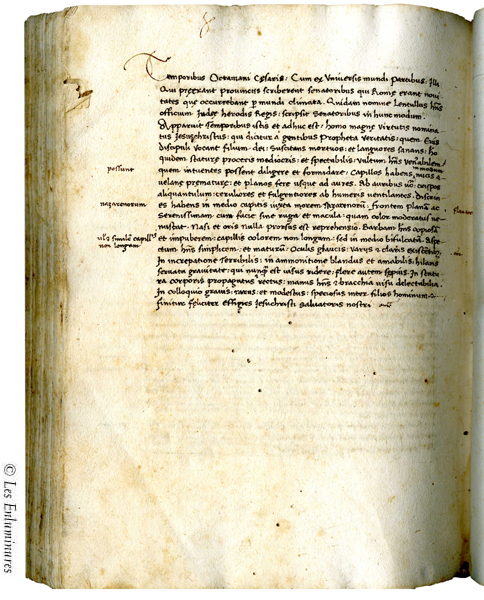 Temporibus Octaviani Cesaris: Cum ex Universis mundi Partibus: Illi
Qui preerant provinciis scriberent senatoribus qui Rome erant novi
tates que occurrebant p mundi climata. Quidam nomine Lentullus hns
officium Iudee herodis Regis: scripsit Senatoribus in hunc modum.
Apparuit temporibus istis et adhuc est: homo magne virtutis nomina
tus Iesuschristus: qui dicitur a gentibus Propheta veritatis: quem eius
discipuli vocant filium dei: Suscitans mortuos: et languores sanans: ho
quidem stature proceris mediocris: et spectabilis: vultum hns venerabilem
possunt
quem intuentes possent diligere et formidare: Capillos habens
et planos fere usque ad aures. Ab auribus vo: crispos
aliquantulum: ceruliores et fulgentiores ab humeris ventilantes: Discrim
nazarenorum
es habens in medio capitis iuxta morem Nazarenorum: frontem planam ac
Serenissimam: cum facie sine ruga et macula: quam color moderatus ve
nustat. Nasi et oris nulla prorsus est reprehensio. Barbam hns copiosam
et impuberem: capillis colorem non longam: sed in medio bifulcatam: Aspe
non longam
ctum hns simplicem: et maturum: Oculis glaucis: variis et claris existentibus
In increpatione terribilis: in ammonitione blandus et amabilis: hilaris
servata gravitate: qui nunq est visus ridere: flere autem sepius. In statu
ra corporis propagatus rectus: manus hns et bracchia visu delectabilia.
In colloquio gravis: rarus: et modestus: speciosus inter filios hominum
finitur feliciter effigies Iesuchristi salvatoris nostri
© Les Enluminures